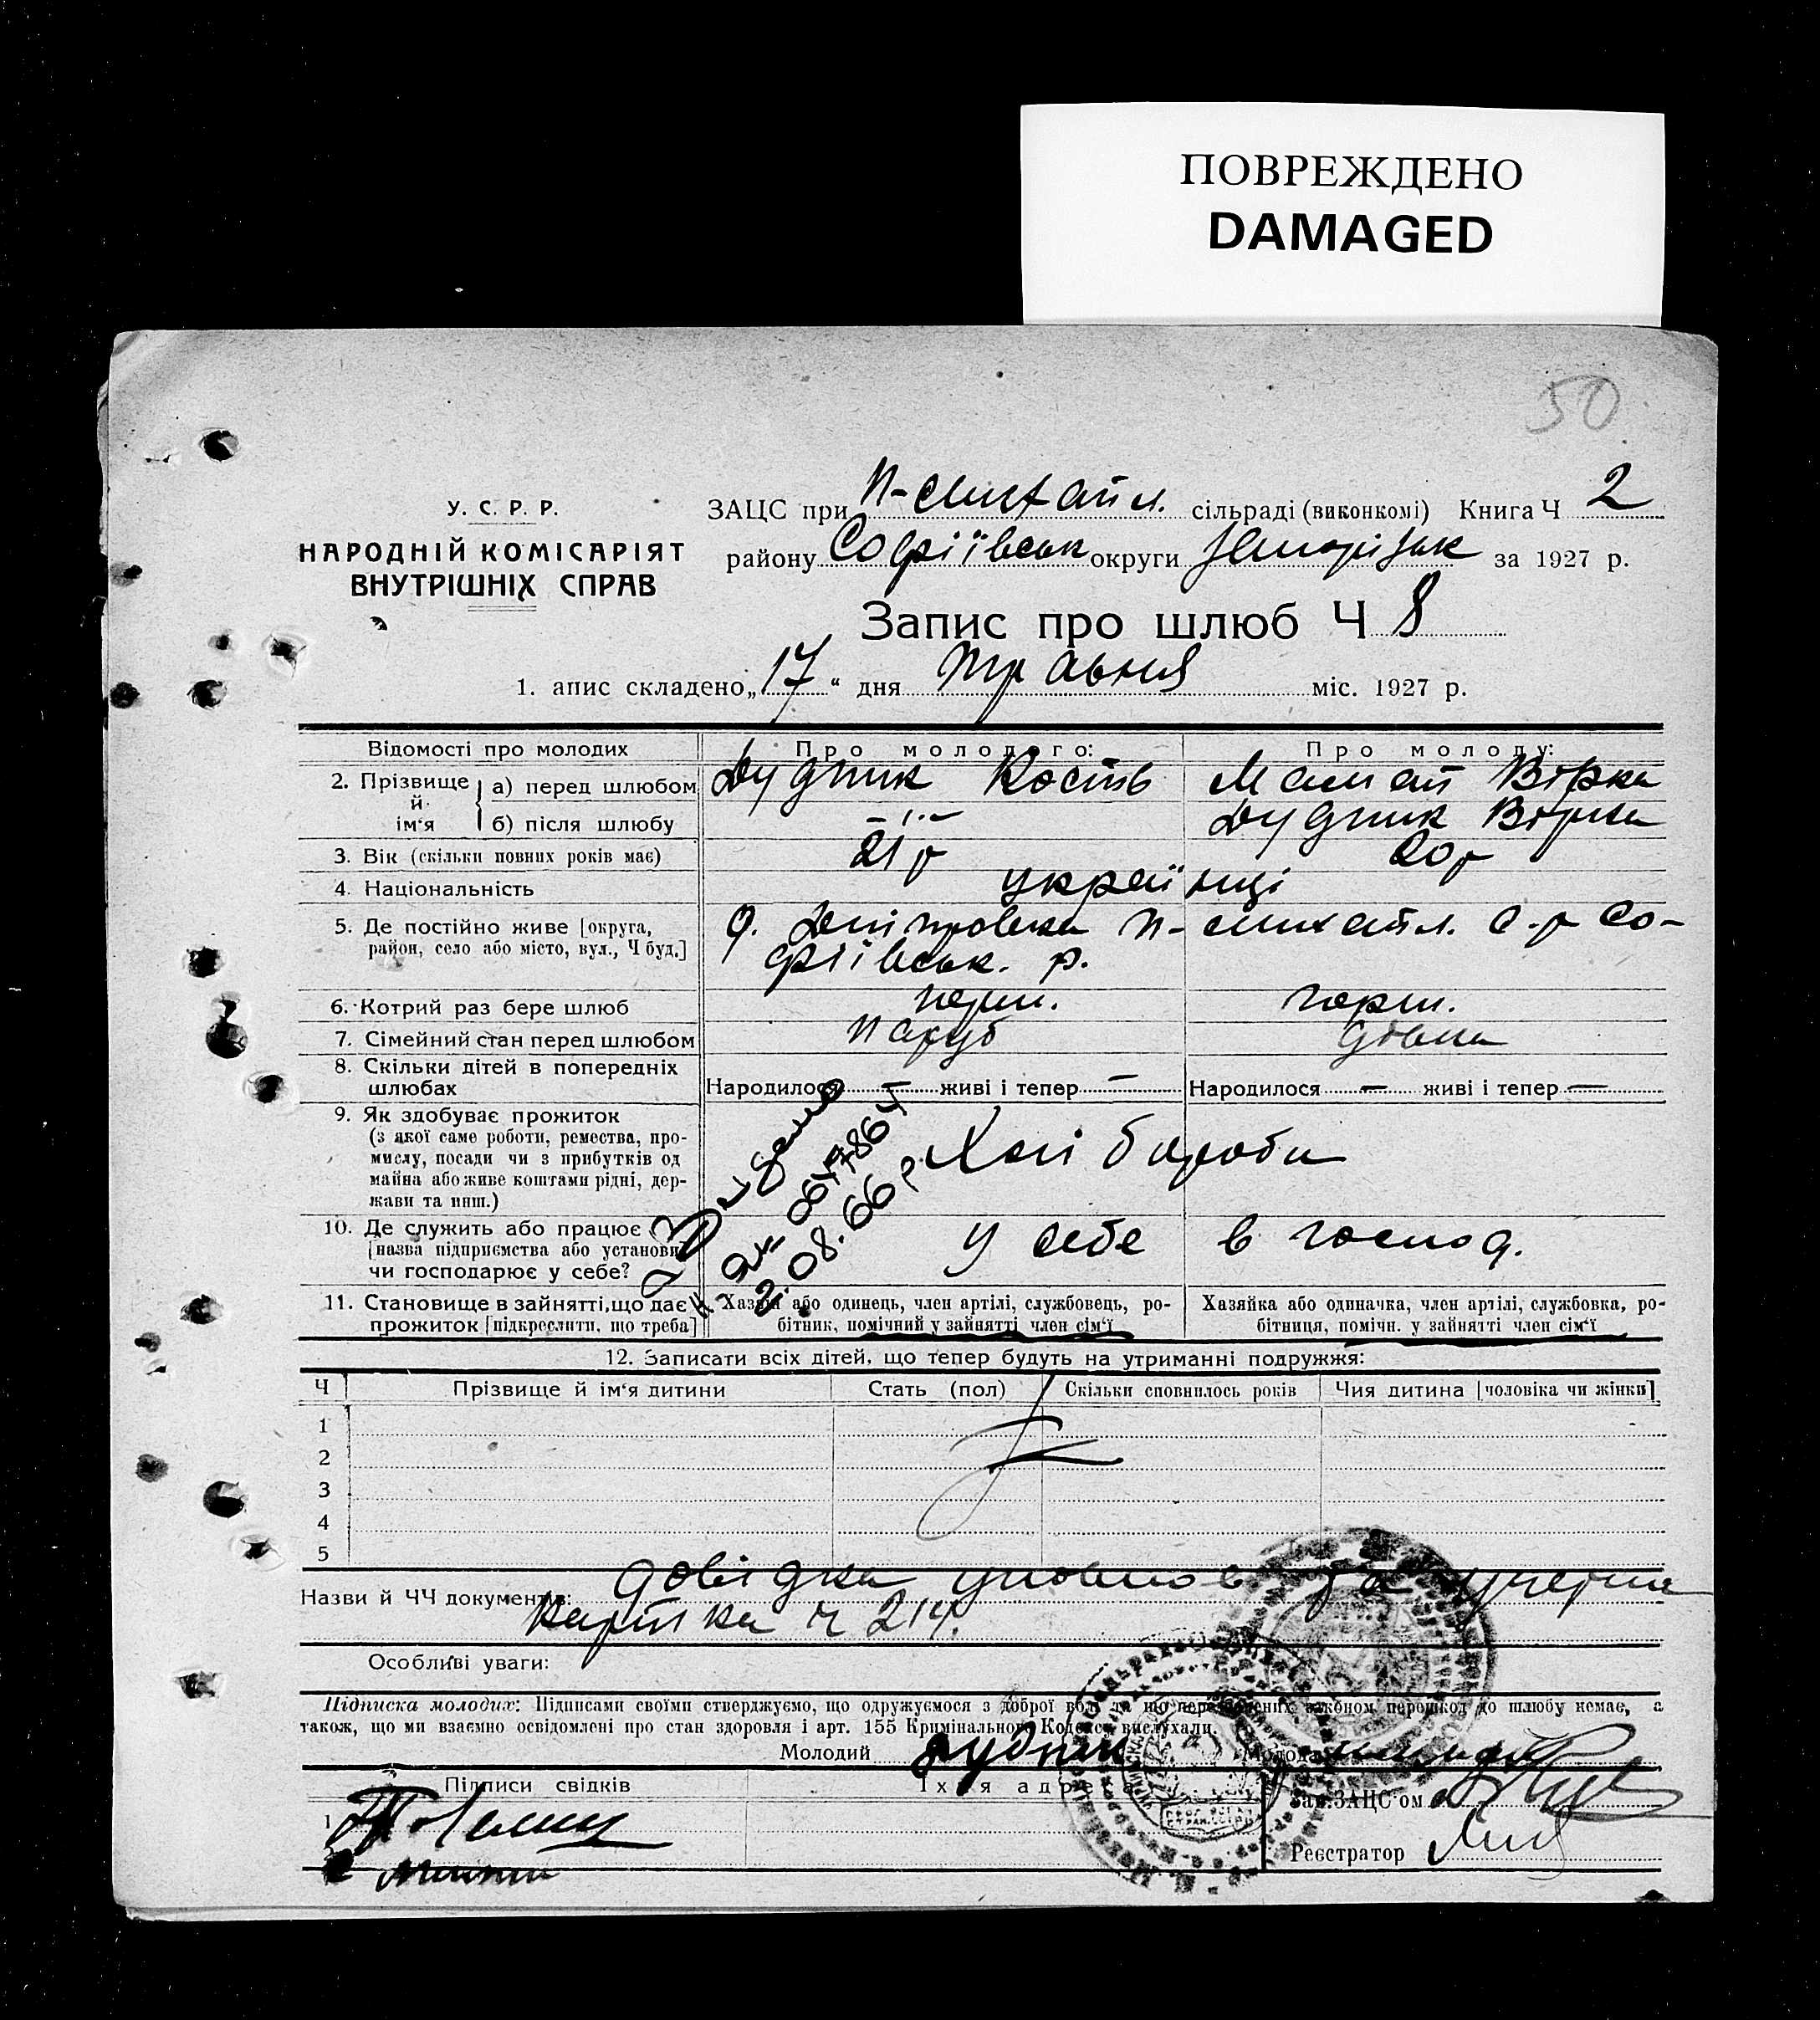 ПОВРЕЖДЕНО
DAMAGED
50
У. С. Р. Р.
НАРОДНІЙ КОМІСАРІЯТ
ВНУТРІШНІХ СПРАВ
ЗАЦС при сільраді (виконкомі) Книга Ч 2
району Софіївськ округи за 1927 р.
Запис про шлюб Ч 8
1. апис складено „17“ дня травня міс. 1927 р.
Відомості про молодих Про молодого: Про молоду:
2. Прізвище й ім'я а) перед шлюбом Дудник Кость Вірка
б) після шлюбу -"- Дудник Вірка
3. Вік (скільки повних років має) 21 р 20 р
4. Національність українці
5. Де постійно живе [округа, район, село або місто, вул., Ч буд.] с.р Со-
фіївськ. р.
6. Котрий раз бере шлюб перш. перш.
7. Сімейний стан перед шлюбом Паруб дівка
8. Скільки дітей в попередніх шлюбах Народилося — живі і тепер — Народилося — живі і тепер —
9. Як здобуває прожиток
(з якої саме роботи, ремества, про-
мислу, посади чи з прибутків од
майна або живе коштами рідні, дер-
жави та инш.)
Хлібороби
10. Де служить або працює
[назва підприємства або установи
чи господарює у себе?
у себе в господ.
08.66 р
11. Становище в зайнятті, що дає
прожиток [підкреслити, що треба]
Хазяїн або одинець, член артілі, службовець, ро-
бітник, помічний у зайнятті член сім'ї
Хазяйка або одиначка, член артілі, службовка, ро-
бітниця, помічн. у зайнятті член сім'ї
12. Записати всіх дітей, що тепер будуть на утриманні подружжя:
Ч Прізвище й ім'я дитини Стать (пол) Скільки сповнилось років Чия дитина [чоловіка чи жінки]
1
2
3
4
5
Назви й ЧЧ документів: Довідка та
картка ч 214.
Особливі уваги:
Підписка молодих: Підписами своїми стверджуємо, що одружуємося з доброї волі, що законом перешкод до шлюбу немає, а
також, що ми взаємно освідомлені про стан здоровля і арт. 155 Кримінального Кодекса вислухали.
Молодий Дудник Молода
Підписи свідків Їхня адреса
1
Зав. ЗАЦС'ом
Реєстратор